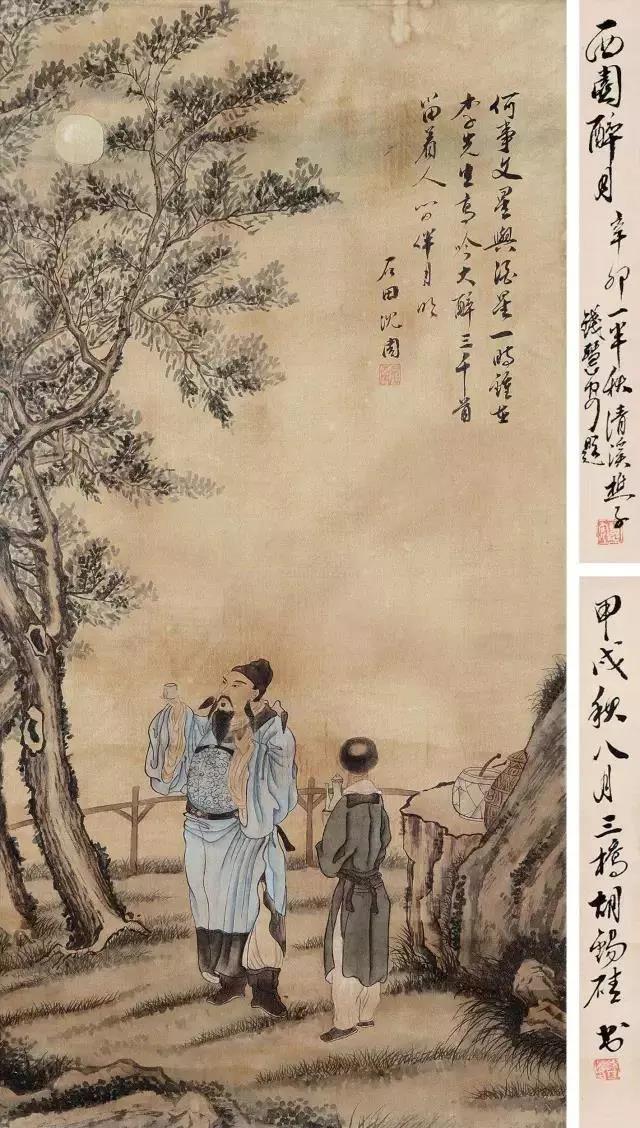 何事文星與酒星一時鍾在
李先生高吟大醉三千首
留着人间伴月明
石田沈周
西園醉月
辛卯一半秋清溪樵子
錢慧安題
甲戌秋八月三橋胡錫珪书